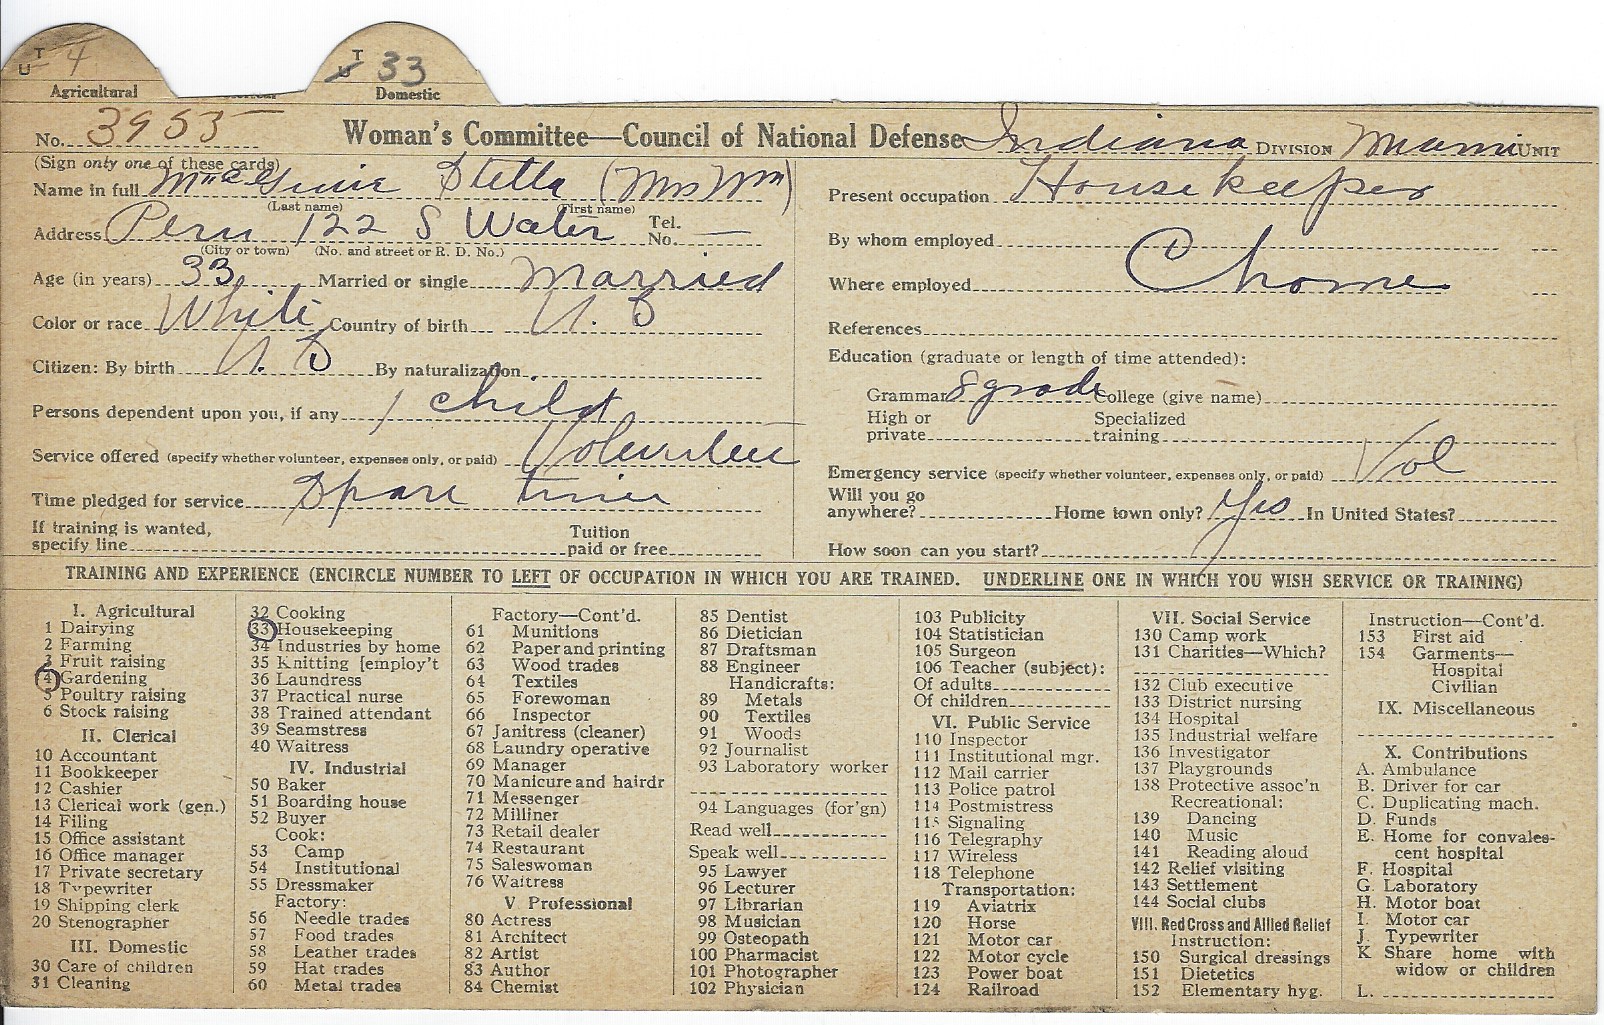 T U 4 T U 33
Agricultural Domestic
No. 3953 Woman's Committee—Council of National Defense Indiana DIVISION Miami UNIT
(Sign only one of these cards)
Name in full Stella (Mrs Wm)
(Last name) (First name)
Address Peru 122 S Water Tel. No. —
(City or town) (No. and street or R. D. No.)
Age (in years) 33 Married or single Married
Color or race White Country of birth U. S
Citizen: By birth U. S By naturalization
Persons dependent upon you, if any 1 child
Service offered (specify whether volunteer, expenses only, or paid) Volunteer
Time pledged for service Spare time
If training is wanted, Tuition
specify line paid or free
Present occupation Housekeeper
By whom employed
Where employed home
References
Education (graduate or length of time attended):
Grammar 8 grade College (give name)
High or Specialized
private training
Emergency service (specify whether volunteer, expenses only, or paid) Vol
Will you go
anywhere? Home town only? Yes In United States?
How soon can you start?
TRAINING AND EXPERIENCE (ENCIRCLE NUMBER TO LEFT OF OCCUPATION IN WHICH YOU ARE TRAINED. UNDERLINE ONE IN WHICH YOU WISH SERVICE OR TRAINING)
I. Agricultural
1 Dairying
2 Farming
3 Fruit raising
4 Gardening
5 Poultry raising
6 Stock raising
II. Clerical
10 Accountant
11 Bookkeeper
12 Cashier
13 Clerical work (gen.)
14 Filing
15 Office assistant
16 Office manager
17 Private secretary
18 Typewriter
19 Shipping clerk
20 Stenographer
III. Domestic
30 Care of children
31 Cleaning
32 Cooking
33 Housekeeping
34 Industries by home
35 Knitting [employ't
36 Laundress
37 Practical nurse
38 Trained attendant
39 Seamstress
40 Waitress
IV. Industrial
50 Baker
51 Boarding house
52 Buyer
Cook:
53 Camp
54 Institutional
55 Dressmaker
Factory:
56 Needle trades
57 Food trades
58 Leather trades
59 Hat trades
60 Metal trades
Factory—Cont'd.
61 Munitions
62 Paper and printing
63 Wood trades
64 Textiles
65 Forewoman
66 Inspector
67 Janitress (cleaner)
68 Laundry operative
69 Manager
70 Manicure and hairdr
71 Messenger
72 Milliner
73 Retail dealer
74 Restaurant
75 Saleswoman
76 Waitress
V Professional
80 Actress
81 Architect
82 Artist
83 Author
84 Chemist
85 Dentist
86 Dietician
87 Draftsman
88 Engineer
Handicrafts:
89 Metals
90 Textiles
91 Woods
92 Journalist
93 Laboratory worker
94 Languages (for'gn)
Read well
Speak well
95 Lawyer
96 Lecturer
97 Librarian
98 Musician
99 Osteopath
100 Pharmacist
101 Photographer
102 Physician
103 Publicity
104 Statistician
105 Surgeon
106 Teacher (subject):
Of adults
Of children
VI. Public Service
110 Inspector
111 Institutional mgr.
112 Mail carrier
113 Police patrol
114 Postmistress
115 Signaling
116 Telegraphy
117 Wireless
118 Telephone
Transportation:
119 Aviatrix
120 Horse
121 Motor car
122 Motor cycle
123 Power boat
124 Railroad
VII. Social Service
130 Camp work
131 Charities—Which?
132 Club executive
133 District nursing
134 Hospital
135 Industrial welfare
136 Investigator
137 Playgrounds
138 Protective assoc'n
Recreational:
139 Dancing
140 Music
141 Reading aloud
142 Relief visiting
143 Settlement
144 Social clubs
VIII. Red Cross and Allied Relief
Instruction:
150 Surgical dressings
151 Dietetics
152 Elementary hyg.
Instruction—Cont'd.
153 First aid
154 Garments—
Hospital
Civilian
IX. Miscellaneous
X. Contributions
A. Ambulance
B. Driver for car
C. Duplicating mach.
D. Funds
E. Home for convales-
cent hospital
F. Hospital
G. Laboratory
H. Motor boat
I. Motor car
J. Typewriter
K Share home with
widow or children
L.